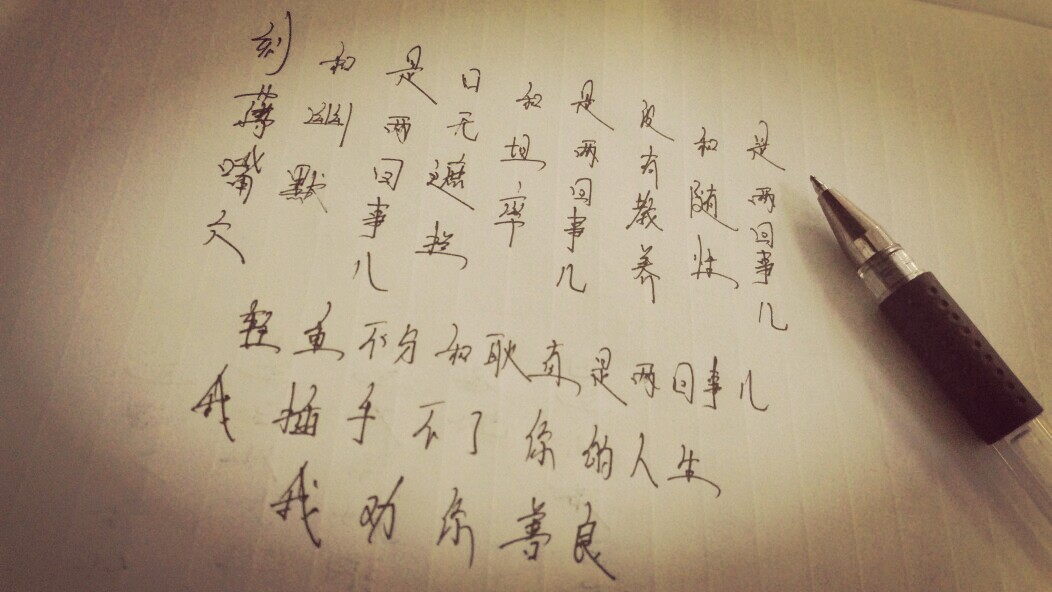 刻薄嘴欠
和幽默
是两回事儿
口无遮拦
和坦率
是两回事儿
没有教养
和随性
是两回事儿
轻重不分和耿直是两回事儿
我插手不了你的人生
我劝你善良